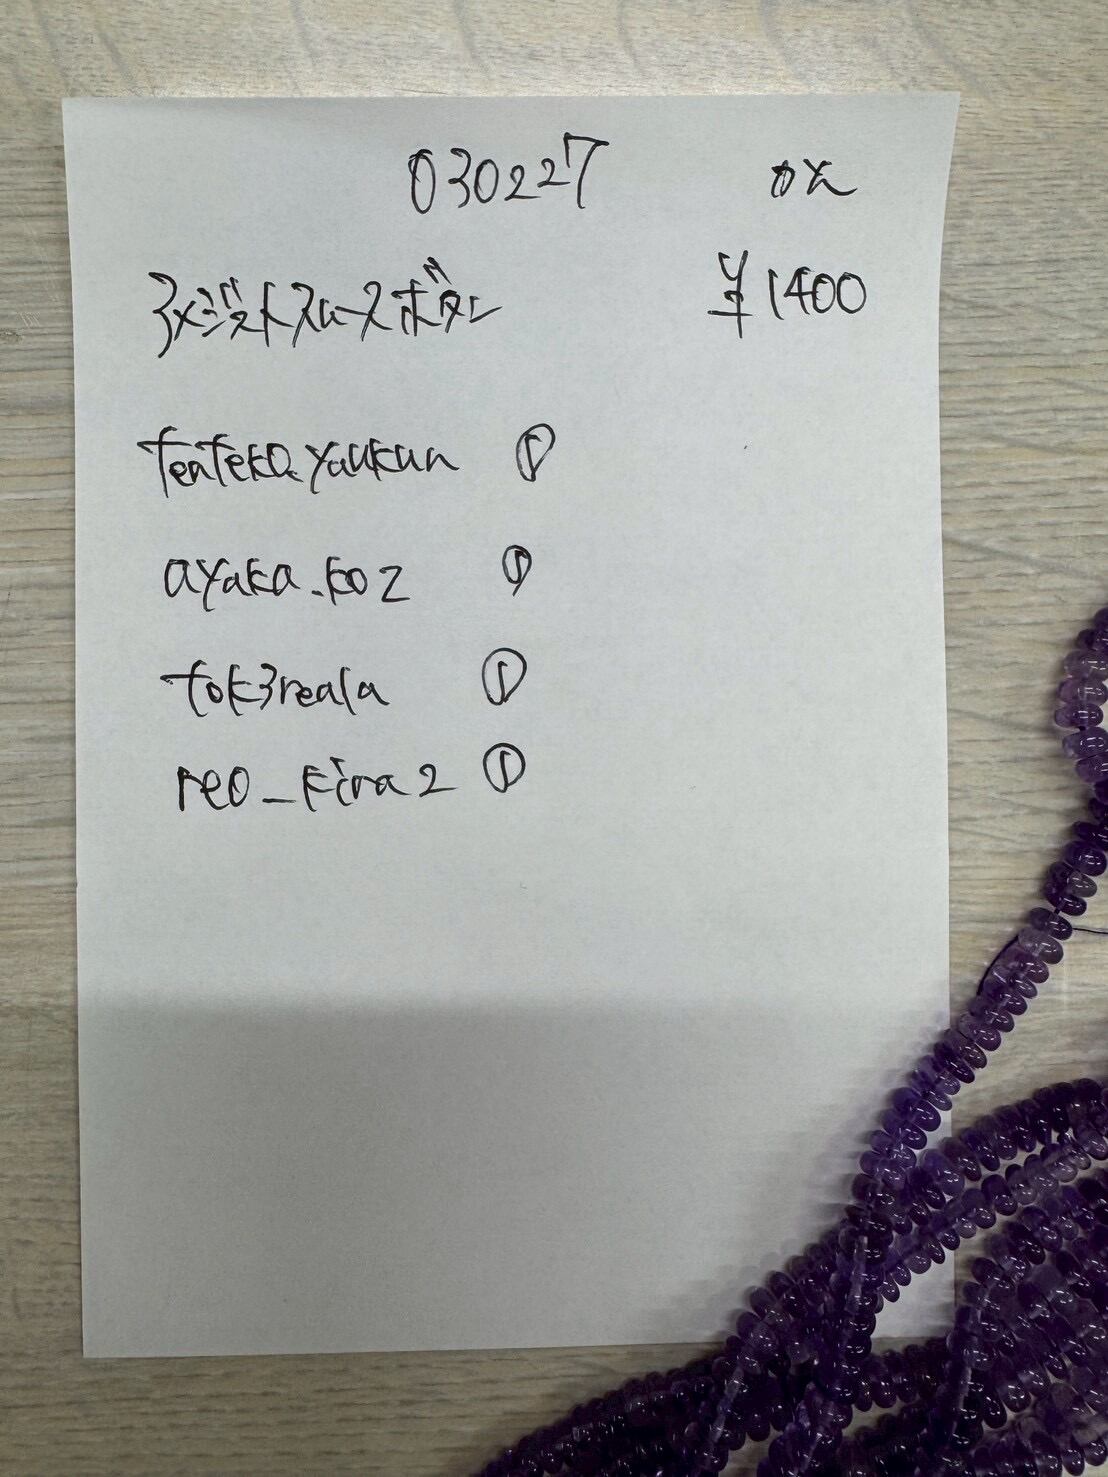 030227 OK
アメジストスムースボタン ¥1400
tenteko.yaukun ①
ayaka.koz ①
tok3reala ①
reo_kira2 ①